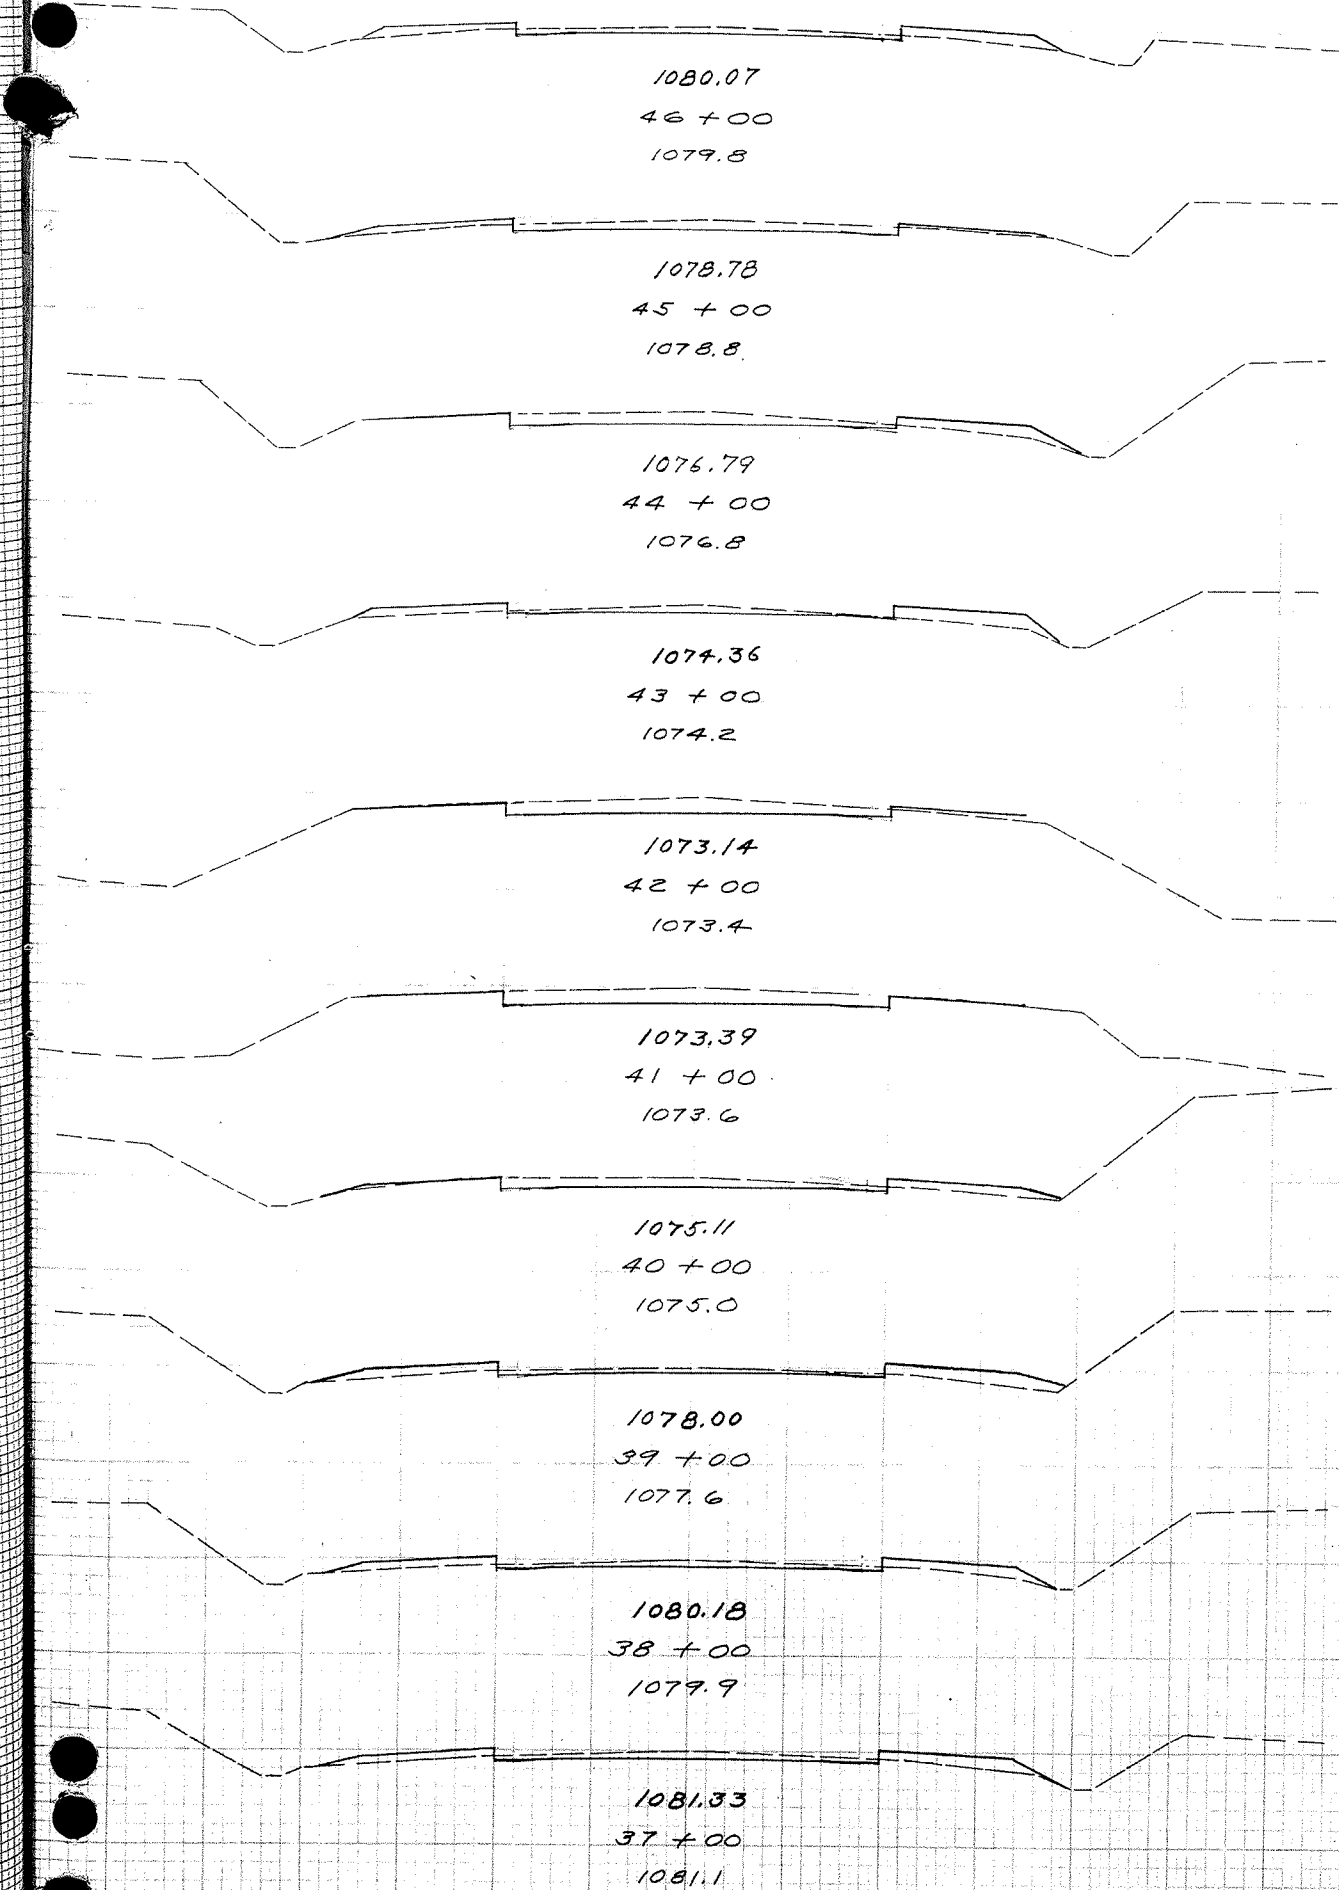 1080.07
46 + 00
1079.8
1078.78
45 + 00
1078.8
1076.79
44 + 00
1076.8
1074.36
43 + 00
1074.2
1073.14
42 + 00
1073.4
1073.39
41 + 00
1073.6
1075.11
40 + 00
1075.0
1078.00
39 + 00
1077.6
1080.18
38 + 00
1079.9
1081.33
37 + 00
1081.1